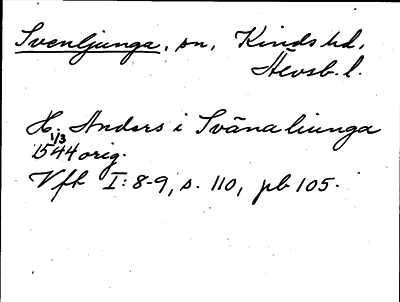 Svenljunga, sn, Kinds hd,
Älvsb. l.
H. Anders i Svänaliunga
1/3
1544 orig.
Vfk I: 8-9, s. 110, pb 105.